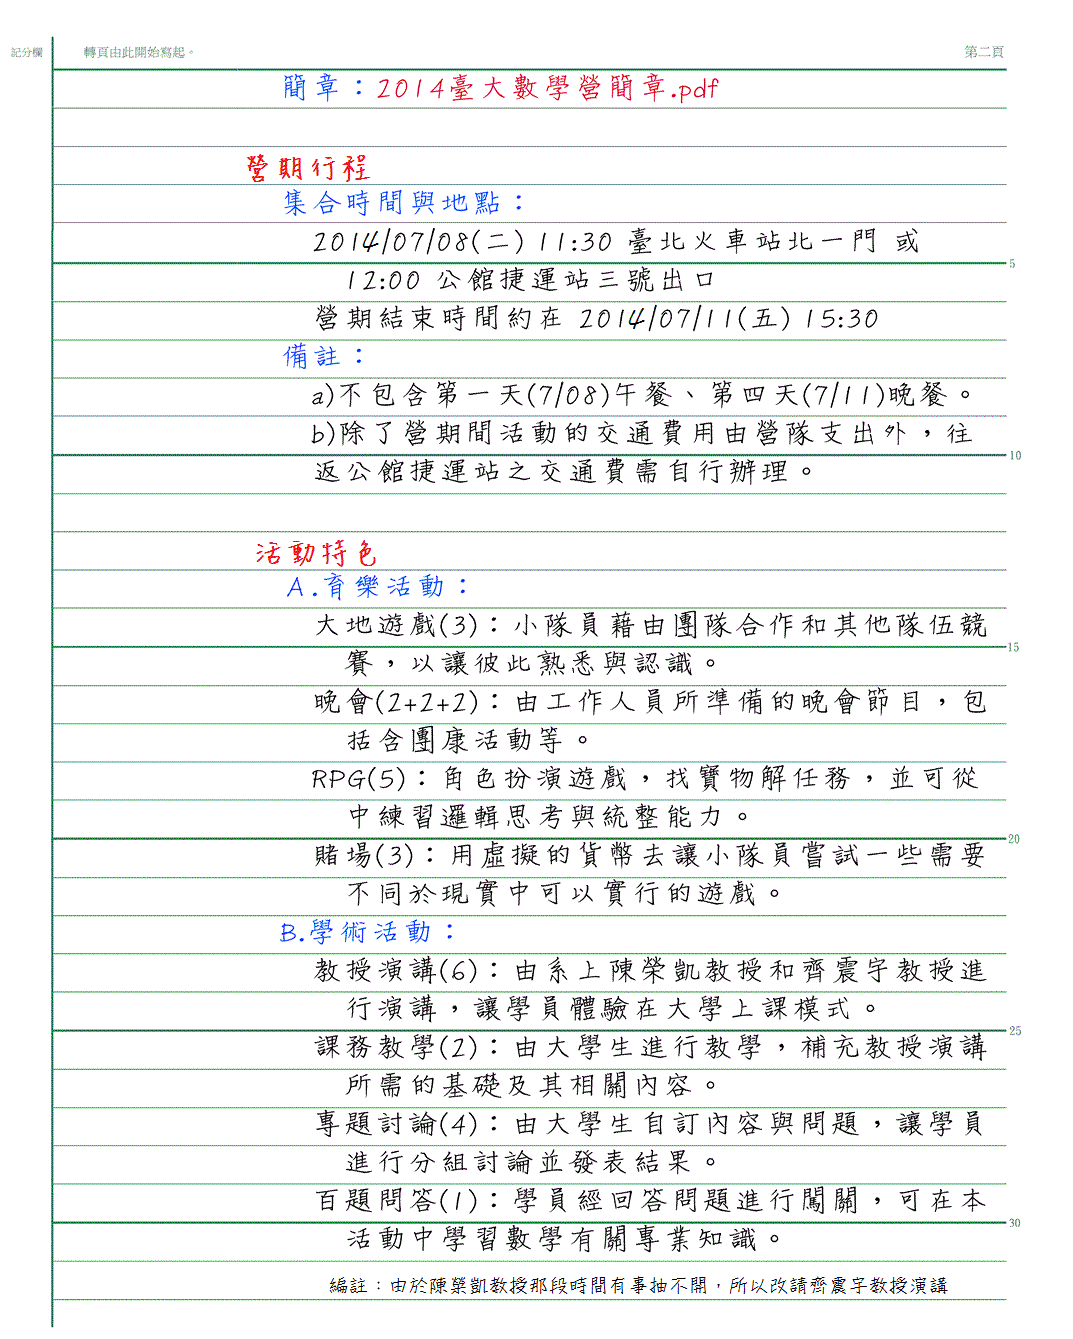 記分欄 轉頁由此開始寫起。 第二頁
簡章：2014臺大數學營簡章.pdf
營期行程
集合時間與地點：
2014/07/08(二) 11:30 臺北火車站北一門 或
12:00 公館捷運站三號出口
營期結束時間約在 2014/07/11(五) 15:30
備註：
a)不包含第一天(7/08)午餐、第四天(7/11)晚餐。
b)除了營期間活動的交通費用由營隊支出外，往
返公館捷運站之交通費需自行辦理。
活動特色
A.育樂活動：
大地遊戲(3)：小隊員藉由團隊合作和其他隊伍競
賽，以讓彼此熟悉與認識。
晚會(2+2+2)：由工作人員所準備的晚會節目，包
括含團康活動等。
RPG(5)：角色扮演遊戲，找寶物解任務，並可從
中練習邏輯思考與統整能力。
賭場(3)：用虛擬的貨幣去讓小隊員嘗試一些需要
不同於現實中可以實行的遊戲。
B.學術活動：
教授演講(6)：由系上陳榮凱教授和齊震宇教授進
行演講，讓學員體驗在大學上課模式。
課務教學(2)：由大學生進行教學，補充教授演講
所需的基礎及其相關內容。
專題討論(4)：由大學生自訂內容與問題，讓學員
進行分組討論並發表結果。
百題問答(1)：學員經回答問題進行闖關，可在本
活動中學習數學有關專業知識。
編註：由於陳榮凱教授那段時間有事抽不開，所以改請齊震宇教授演講
5
10
15
20
25
30